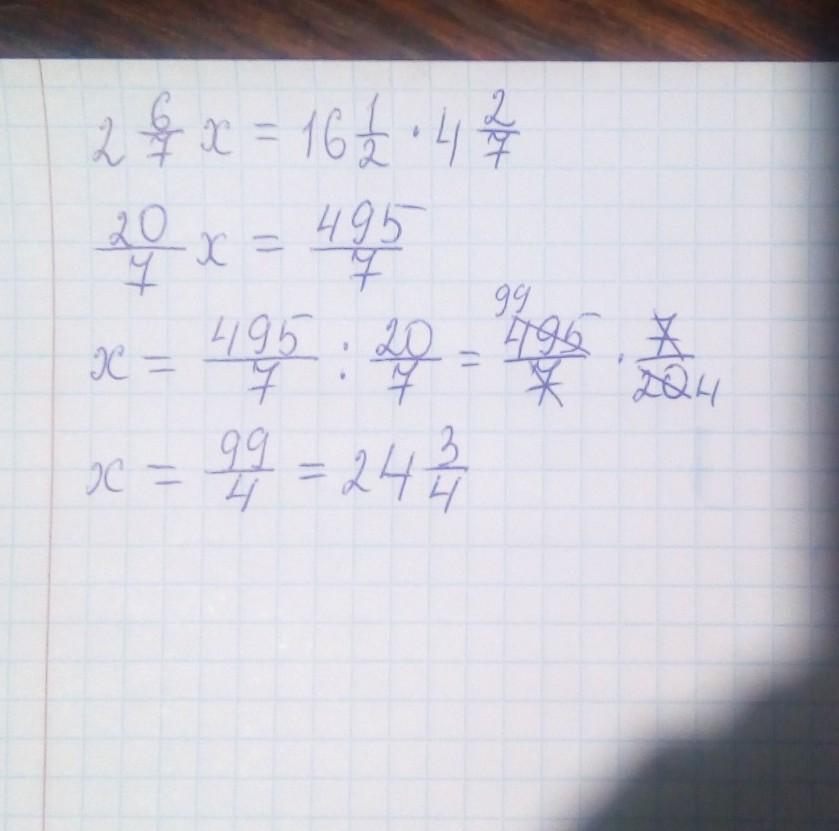 2 6/7 x = 16 1/2 · 4 2/7
20/7 x = 495/7
x = 495/7 : 20/7 = 99 495/7 · 7/20 4
x = 99/4 = 24 3/4